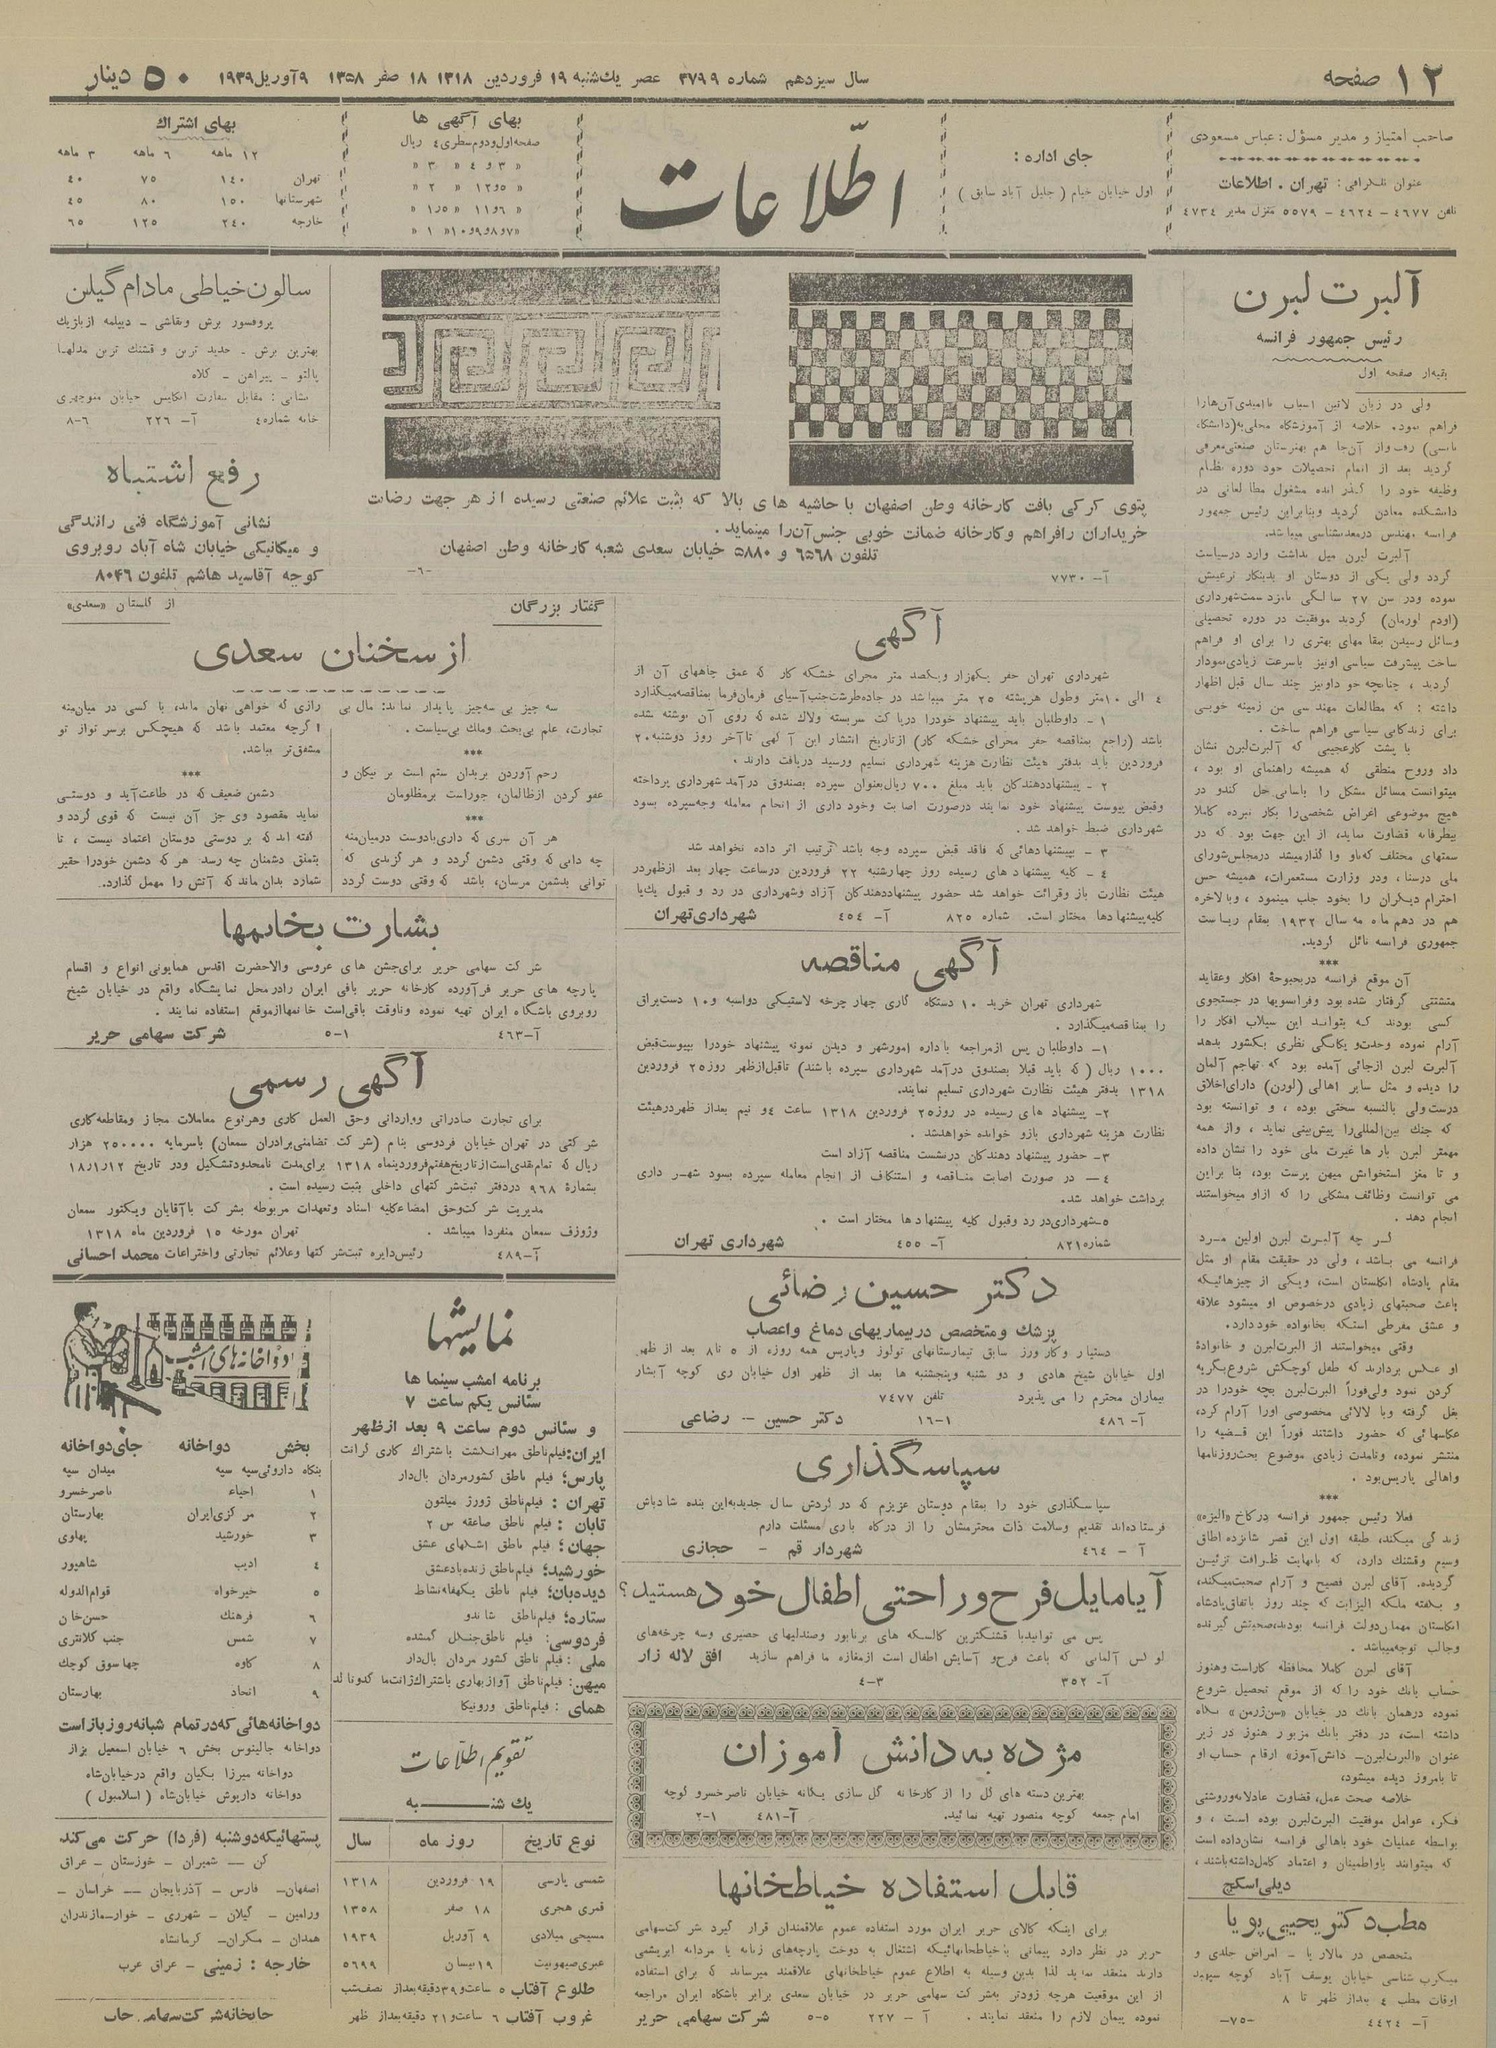 ۱۲ صفحه
سال سیزدهم شماره ۳۷۹۹ عصر یك‌شنبه ۱۹ فروردین ۱۳۱۸ ۱۸ صفر ۱۳۵۸ ۹ آوریل ۱۹۳۹
۵۰ دینار
صاحب امتیاز و مدیر مسؤل : عباس مسعودی
عنوان تلگرافی : تهران . اطلاعات
تلفن ۴۶۷۷ - ۴۶۲۴ - ۵۵۷۹ منزل مدیر ۴۷۳۴
جای اداره :
اول خیابان خیام ( جلیل آباد سابق )
اطلاعات
بهای آگهی ها
صفحه اول و دوم سطری ٤ ریال
« ۳ و ٤ « ۳ «
« ٥ و ۱۲ « ۲ «
« ۶ و ۱۱ « ۱٫۵ «
« ۷ و ۸ و ۹ و ۱۰ « ۱ «
بهای اشتراك
۱۲ ماهه ۶ ماهه ۳ ماهه
تهران ۱٤۰ ۷۵ ٤۰
شهرستانها ۱۵۰ ۸۰ ٤۵
خارجه ۲٤۰ ۱۲۵ ۶۵
آلبرت لبرن
رئیس جمهور فرانسه
بقیه از صفحه اول
ولی در زبان لاتین اسباب ناامیدی آن‌هارا
گردید بعد از اتمام تحصیلات خود دوره نظام
وظیفه خود را گذرانده مشغول مطالعاتی در
دانشکده معادن گردید وبنابراین رئیس جمهور
فرانسه مهندس درمعدنشناسی میباشد.
آلبرت لبرن میل نداشت وارد درسیاست
گردد ولی یکی از دوستان او بدینکار ترغیبش
نموده ودر سن ۲۷ سالگی نامزد سمت‌شهرداری
گردید موفقیت در دوره تحصیلی
وسائل رسیدن بمقامهای بهتری را برای او فراهم
ساخت پیشرفت سیاسی اونیز باسرعت زیادی نمودار
گردید ، چنانچه خو داونیز چند سال قبل اظهار
داشته : که مطالعات مهندسی من زمینه خوبی
برای زندگانی سیاسی فراهم ساخت .
با پشت کارعجیبی که آلبرت‌لبرن نشان
داد وروح منطقی که همیشه راهنمای او بود ،
میتوانست مسائل مشکل را باسانی حل کندو در
هیچ موضوعی اغراض شخصی‌را بکار نبرده کاملا
بیطرفانه قضاوت نماید، از این جهت بود که در
سمتهای مختلف که‌باو واگذارمیشد درمجلس‌شورای
ملی درسنا، ودر وزارت مستعمرات، همیشه حس
احترام دیگران را بخود جلب مینمود ، وبالاخره
هم در دهم ماه مه سال ۱۹۳۲ بمقام ریاست
جمهوری فرانسه نائل گردید.
***
آن موقع فرانسه دربحبوحهٔ افکار وعقاید
متشتتی گرفتار شده بود وفرانسویها در جستجوی
کسی بودند که بتواند این سیلاب افکار را
آرام نموده وحدت‌و یگانگی نظری بکشور بدهد
آلبرت لبرن ازجائی آمده بود که تهاجم آلمان
را دیده و مثل سایر اهالی (لورن) دارای‌اخلاق
درست‌ولی بالنسبه سختی بوده ، و توانسته بود
که جنك بین‌المللی‌را پیش‌بینی نماید ، وازهمه
مهمتر لبرن بارها غیرت ملی خود را نشان داده
و تا مغز استخوانش میهن پرست بود، بنا براین
می توانست وظائف مشکلی را که ازاو میخواستند
انجام دهد .
گرچه آلبرت لبرن اولین مرد
فرانسه می باشد ، ولی در حقیقت مقام او مثل
مقام پادشاه انگلستان است، ویکی از چیزهائیکه
باعث صحبتهای زیادی درخصوص او میشود علاقه
و عشق مفرطی استکه بخانواده خوددارد.
وقتی میخواستند از آلبرت‌لبرن و خانوادهٔ
او عکس بردارند که طفل کوچکش شروع‌بگریه
کردن نمود ولی‌فوراً البرت‌لبرن بچه خودرا در
بغل گرفته وبا لالائی مخصوصی اورا آرام کرد،
عکاسهائی که حضور داشتند فوراً این قضیه را
منتشر نموده، وتامدت زیادی موضوع بحث‌روزنامها
واهالی پاریس‌بود .
***
فعلا رئیس جمهور فرانسه درکاخ «الیزه»
زندگی میکند، طبقه اول این قصر شانزده اطاق
وسیع وقشنك دارد، که بانهایت ظرافت تزئین
گردیده. آقای لبرن فصیح و آرام صحبت‌میکند،
و بگفته ملکه الیزابت که چند روز باتفاق‌پادشاه
انگلستان مهمان‌دولت فرانسه بودند،صحبتش گیرنده
وجالب توجه‌میباشد .
آقای لبرن کاملا محافظه کاراست وهنوز
حساب بانك خود را که از موقع تحصیل شروع
نموده درهمان بانك در خیابان «سن‌ژرمن» نگاه
داشته است، در دفتر بانك مزبور هنوز در زیر
عنوان «البرت‌لبرن- دانش‌آموز» ارقام حساب او
تا بامروز دیده میشود،
خلاصه صحت عمل، قضاوت عادلانه‌وروشنی
فکر، عوامل موفقیت البرت‌لبرن بوده است ، و
بواسطه عملیات خود باهالی فرانسه نشان‌داده است
که میتوانند باواطمینان و اعتماد کامل‌داشته‌باشند ،
دیلی‌اسکچ
مطب دکتر یحیی پویا
متخصص در مالاریا - امراض جلدی و
میکرب شناسی خیابان یوسف آباد کوچه سپهبد
اوقات مطب ٤ بعداز ظهر تا ۸
آ- ٤٤۲٤ -۷۵-
پتوی کرکی بافت کارخانه وطن اصفهان با حاشیه های بالا که بثبت علائم صنعتی رسیده از هر جهت رضایت
خریداران رافراهم وکارخانه ضمانت خوبی جنس آن‌را مینماید.
تلفون ۶۵۶۸ و ۵۸۸۰ خیابان سعدی شعبه کارخانه وطن اصفهان
آ- ۷۷۳۰ -۶-
آگهی
شهرداری تهران حفر یکهزار ویکصد متر مجرای خشکه کار که عمق چاههای آن از
٤ الی ۱۰متر وطول هررشته ۲۵ متر میباشد در جاده‌طرشت‌جنب‌آسیای فرمان‌فرما بمناقصه‌میگذارد
۱ - داوطلبان باید پیشنهاد خودرا درپاکت سربسته ولاك شده که روی آن نوشته شده
باشد (راجع بمناقصه حفر مجرای خشکه کار) ازتاریخ انتشار این آگهی تاآخر روز دوشنبه۲۰
فروردین باید بدفتر هیئت نظارت هزینه شهرداری تسلیم ورسید دریافت دارند .
۲ - پیشنهاددهندگان باید مبلغ ۷۰۰ ریال‌بعنوان سپرده بصندوق درآمد شهرداری پرداخته
وقبض پیوست پیشنهاد خود نمایند درصورت اصابت وخودداری از انجام معامله وجه‌سپرده بسود
شهرداری ضبط خواهد شد .
۳ - بپیشنهادهائی که فاقد قبض سپرده وجه باشد ترتیب اثر داده نخواهد شد
٤ - کلیه پیشنهادهای رسیده روز چهارشنبه ۲۲ فروردین درساعت چهار بعد ازظهردر
هیئت نظارت باز وقرائت خواهد شد حضور پیشنهاددهندگان آزاد وشهرداری در رد و قبول یك‌یا
کلیه‌پیشنهادها مختار است. شماره ۸۲۵ آ- ٤۵٤ شهرداری‌تهران
آگهی مناقصه
شهرداری تهران خرید ۱۰ دستگاه گاری چهار چرخه لاستیکی دواسبه و۱۰ دست‌یراق
را بمناقصه‌میگذارد .
۱- داوطلبان پس ازمراجعه باداره امورشهر و دیدن نمونه پیشنهاد خودرا بپیوست‌قبض
۱۰۰۰ ریال (که باید قبلا بصندوق درآمد شهرداری سپرده باشند) تاقبل‌ازظهر روز۲۵ فروردین
۱۳۱۸ بدفتر هیئت نظارت شهرداری تسلیم نمایند.
۲- پیشنهاد های رسیده در روز۲۵ فروردین ۱۳۱۸ ساعت ٤و نیم بعداز ظهردرهیئت
نظارت هزینه شهرداری بازو خوانده خواهدشد .
۳- حضور پیشنهاد دهندگان درنشست مناقصه آزاد است
٤ - در صورت اصابت مناقصه و استنکاف از انجام معامله سپرده بسود شهرداری
برداشت خواهد شد.
۵-شهرداری‌در رد وقبول کلیه پیشنهادها مختار است .
شماره ۸۲۱ آ- ٤۵۵ شهرداری تهران
دکتر حسین رضائی
پزشك ومتخصص دربیماریهای دماغ واعصاب
دستیار وکارورز سابق تیمارستانهای تولوز وپاریس همه روزه از ۵ تا ۸ بعد از ظهر
اول خیابان شیخ هادی و دو شنبه وپنجشنبه ها بعد از ظهر اول خیابان ری کوچه آبشار
بیماران محترم را می پذیرد تلفن ۷٤۷۷
آ- ٤۸۶ ۱-۱۶ دکتر حسین - رضاعی
سپاسگذاری
سپاسگذاری خود را بمقام دوستان عزیزم که در گردش سال جدیدبه‌این بنده شادباش
فرستاده‌اند تقدیم وسلامت ذات محترمشان را از درگاه باری مسئلت دارم
آ - ٤۶٤ شهردار قم - حجازی
آیامایل‌فرح‌وراحتی اطفال خود هستید؟
پس می توانیدبا قشنگترین کالسکه های برنابور وصندلیهای حصیری وسه چرخه‌های
لوکس آلمانی که باعث فرح‌و آسایش اطفال است ازمغازه ما فراهم سازید افق لاله زار
آ- ۳۵۲ ۳-٤
مژده به دانش آموزان
بهترین دسته های گل را از کارخانه گل سازی یگانه خیابان ناصرخسرو کوچه
امام جمعه کوچه منصور تهیه نمائید. آ-٤۸۱ ۱-۲
قابل استفاده خیاطخانها
برای اینکه کالای حریر ایران مورد استفاده عموم علاقمندان قرار گیرد شرکت‌سهامی
حریر در نظر دارد پیمانی باخیاطخانهائیکه اشتغال به دوخت پارچه‌های زنانه یا مردانه ابریشمی
دارند منعقد نماید لذا بدین وسیله به اطلاع عموم خیاطخانهای علاقمند میرساند که برای استفاده
از این موقعیت هرچه زودتر به‌شرکت سهامی حریر در خیابان سعدی برابر باشگاه ایران مراجعه
نموده پیمان لازم را منعقد نمایند . آ - ۲۲۷ ۵-۵ شرکت سهامی حریر
سالون خیاطی مادام گیلن
پروفسور برش ونقاشی - دیپلمه ازپاریك
بهترین برش - جدید ترین و قشنك ترین مدلها
پالتو - پیراهن - کلاه
نشانی : مقابل سفارت انگلیس خیابان منوچهری
خانه شماره٤ آ- ۲۲۶ ۶-۸
رفع اشتباه
نشانی آموزشگاه فنی رانندگی
و میکانیکی خیابان شاه آباد روبروی
کوچه آقاسید هاشم تلفون ۸۰٤۶
گفتار بزرگان
از گلستان «سعدی»
از سخنان سعدی
سه چیز بی سه‌چیز پایدار نماند: مال بی
تجارت، علم بی‌بحث وملك بی‌سیاست .
***
رحم آوردن بربدان ستم است بر نیکان و
عفو کردن ازظالمان، جوراست برمظلومان
***
هر آن سری که داری‌بادوست درمیان‌منه
چه دانی که وقتی دشمن گردد و هر گزندی که
توانی بدشمن مرسان، باشد که وقتی دوست گردد
رازی که خواهی نهان ماند، با کسی در میان‌منه
اگرچه معتمد باشد که هیچکس برسر تواز تو
مشفق‌تر نباشد.
***
دشمن ضعیف که در طاعت‌آید و دوستی
نماید مقصود وی جز آن نیست که قوی گردد و
گفته اند که بر دوستی دوستان اعتماد نیست ، تا
بتملق دشمنان چه رسد. هر که دشمن خودرا حقیر
شمارد بدان ماند که آتش را مهمل گذارد.
بشارت بخانمها
شرکت سهامی حریر برای‌جشن های عروسی والاحضرت اقدس همایونی انواع و اقسام
پارچه های حریر فرآورده کارخانه حریر بافی ایران رادرمحل نمایشگاه واقع در خیابان شیخ
روبروی باشگاه ایران تهیه نموده وتاوقت باقی‌است خانمهاازموقع استفاده نمایند .
آ-٤۶۳ ۱-۵ شرکت سهامی حریر
آگهی رسمی
برای تجارت صادراتی وواردانی وحق العمل کاری وهرنوع معاملات مجاز ومقاطعه‌کاری
شرکتی در تهران خیابان فردوسی بنام (شرکت تضامنی‌برادران سمعان) باسرمایه ۲۵۰۰۰۰ هزار
ریال که تمام‌نقدی‌است‌ازتاریخ‌هفتم‌فروردینماه ۱۳۱۸ برای‌مدت نامحدودتشکیل ودر تاریخ ۱۸/۱/۱۲
بشمارهٔ ۹۶۸ دردفتر ثبت‌شرکتهای داخلی بثبت رسیده است .
مدیریت شرکت‌وحق امضاءکلیه اسناد وتعهدات مربوطه بشرکت باآقایان ویکتور سمعان
وژوزف سمعان منفردا میباشد . تهران مورخه ۱۵ فروردین ماه ۱۳۱۸
آ-٤۸۹ رئیس‌دایره ثبت‌شرکتها وعلائم تجارتی واختراعات محمد احسانی
نمایشها
برنامه امشب سینما ها
سئانس یکم ساعت ۷
و سئانس دوم ساعت ۹ بعد ازظهر
ایران: فیلم‌ناطق مهرانگشت باشتراك کاری گرانت
پارس: فیلم ناطق کشورمردان بال‌دار
تهران : فیلم‌ناطق ژورژ میلتون
تابان : فیلم ناطق صاعقه س ۲
جهان: فیلم ناطق اشکهای عشق
خورشید: فیلم‌ناطق زنده‌بادعشق
دیده‌بان: فیلم ناطق یکهفته‌نشاط
ستاره: فیلم‌ناطق شاندو
فردوسی: فیلم ناطق‌جنگل گمشده
ملی: فیلم ناطق کشور مردان بال‌دار
میهن: فیلم‌ناطق آوازبهاری باشتراك‌ژانت‌ماکدونالد
همای: فیلم‌ناطق ورونیکا
تقویم اطلاعات
یك شنبه
نوع تاریخ روز ماه سال
شمسی پارسی ۱۹ فروردین ۱۳۱۸
قمری هجری ۱۸ صفر ۱۳۵۸
مسیحی میلادی ۹ آوریل ۱۹۳۹
عبری‌صیهونیت ۱۹نیسان ۵۶۹۹
طلوع آفتاب ۵ ساعت‌و۳۹دقیقه‌بعداز نصف‌شب
غروب آفتاب ۶ ساعت‌و۲۱ دقیقه‌بعداز ظهر
دواخانه‌های امشب
بخش دواخانه جای‌دواخانه
بنگاه داروئی‌سپه سپه میدان سپه
۱ احیاء ناصرخسرو
۲ مرکزی‌ایران بهارستان
۳ خورشید پهلوی
٤ ادیب شاهپور
۵ خیرخواه قوام‌الدوله
۶ فرهنك حسن‌خان
۷ شمس جنب کلانتری
۸ کاوه چهارسوق کوچك
۹ اتحاد بهارستان
دواخانه‌هائی که‌درتمام شبانه‌روزبازاست
دواخانه جالینوس بخش ۶ خیابان اسمعیل بزاز
دواخانه میرزا بکیان واقع درخیابان‌شاه
دواخانه داریوش خیابان‌شاه ( اسلامبول )
پستهائیکه‌دوشنبه (فردا) حرکت می‌کند
کن - شمیران - خوزستان - عراق
اصفهان- فارس - آذربایجان - خراسان -
ورامین - گیلان - شهرری - خوار-مازندران
همدان - مکران- کرمانشاه
خارجه : زمینی - عراق عرب
چاپخانه‌شرکت‌سهامی چاپ